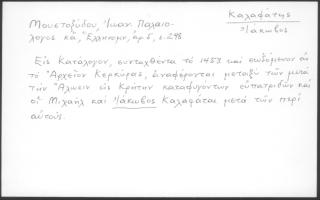 Καλαφάτης
Ἰάκωβος
Μουστοξύδου, Ἰωαν. Παλαιο-
λόγος κἄ, Ἑλληνομν, ἀρ. 5, σ. 295
Εἰς Κατάλογον, συνταχθέντα τό 1453 καί σωζόμενον ἐν
τῷ Ἀρχείῳ Κερκύρας, ἀναφέρονται μεταξύ τῶν μετά
τήν Ἅλωσιν εἰς Κρήτην καταφυγόντων εὐπατριδῶν καί
οἱ Μιχαήλ καί Ἰάκωβος Καλαφάται μετά τῶν περί
αὐτούς.